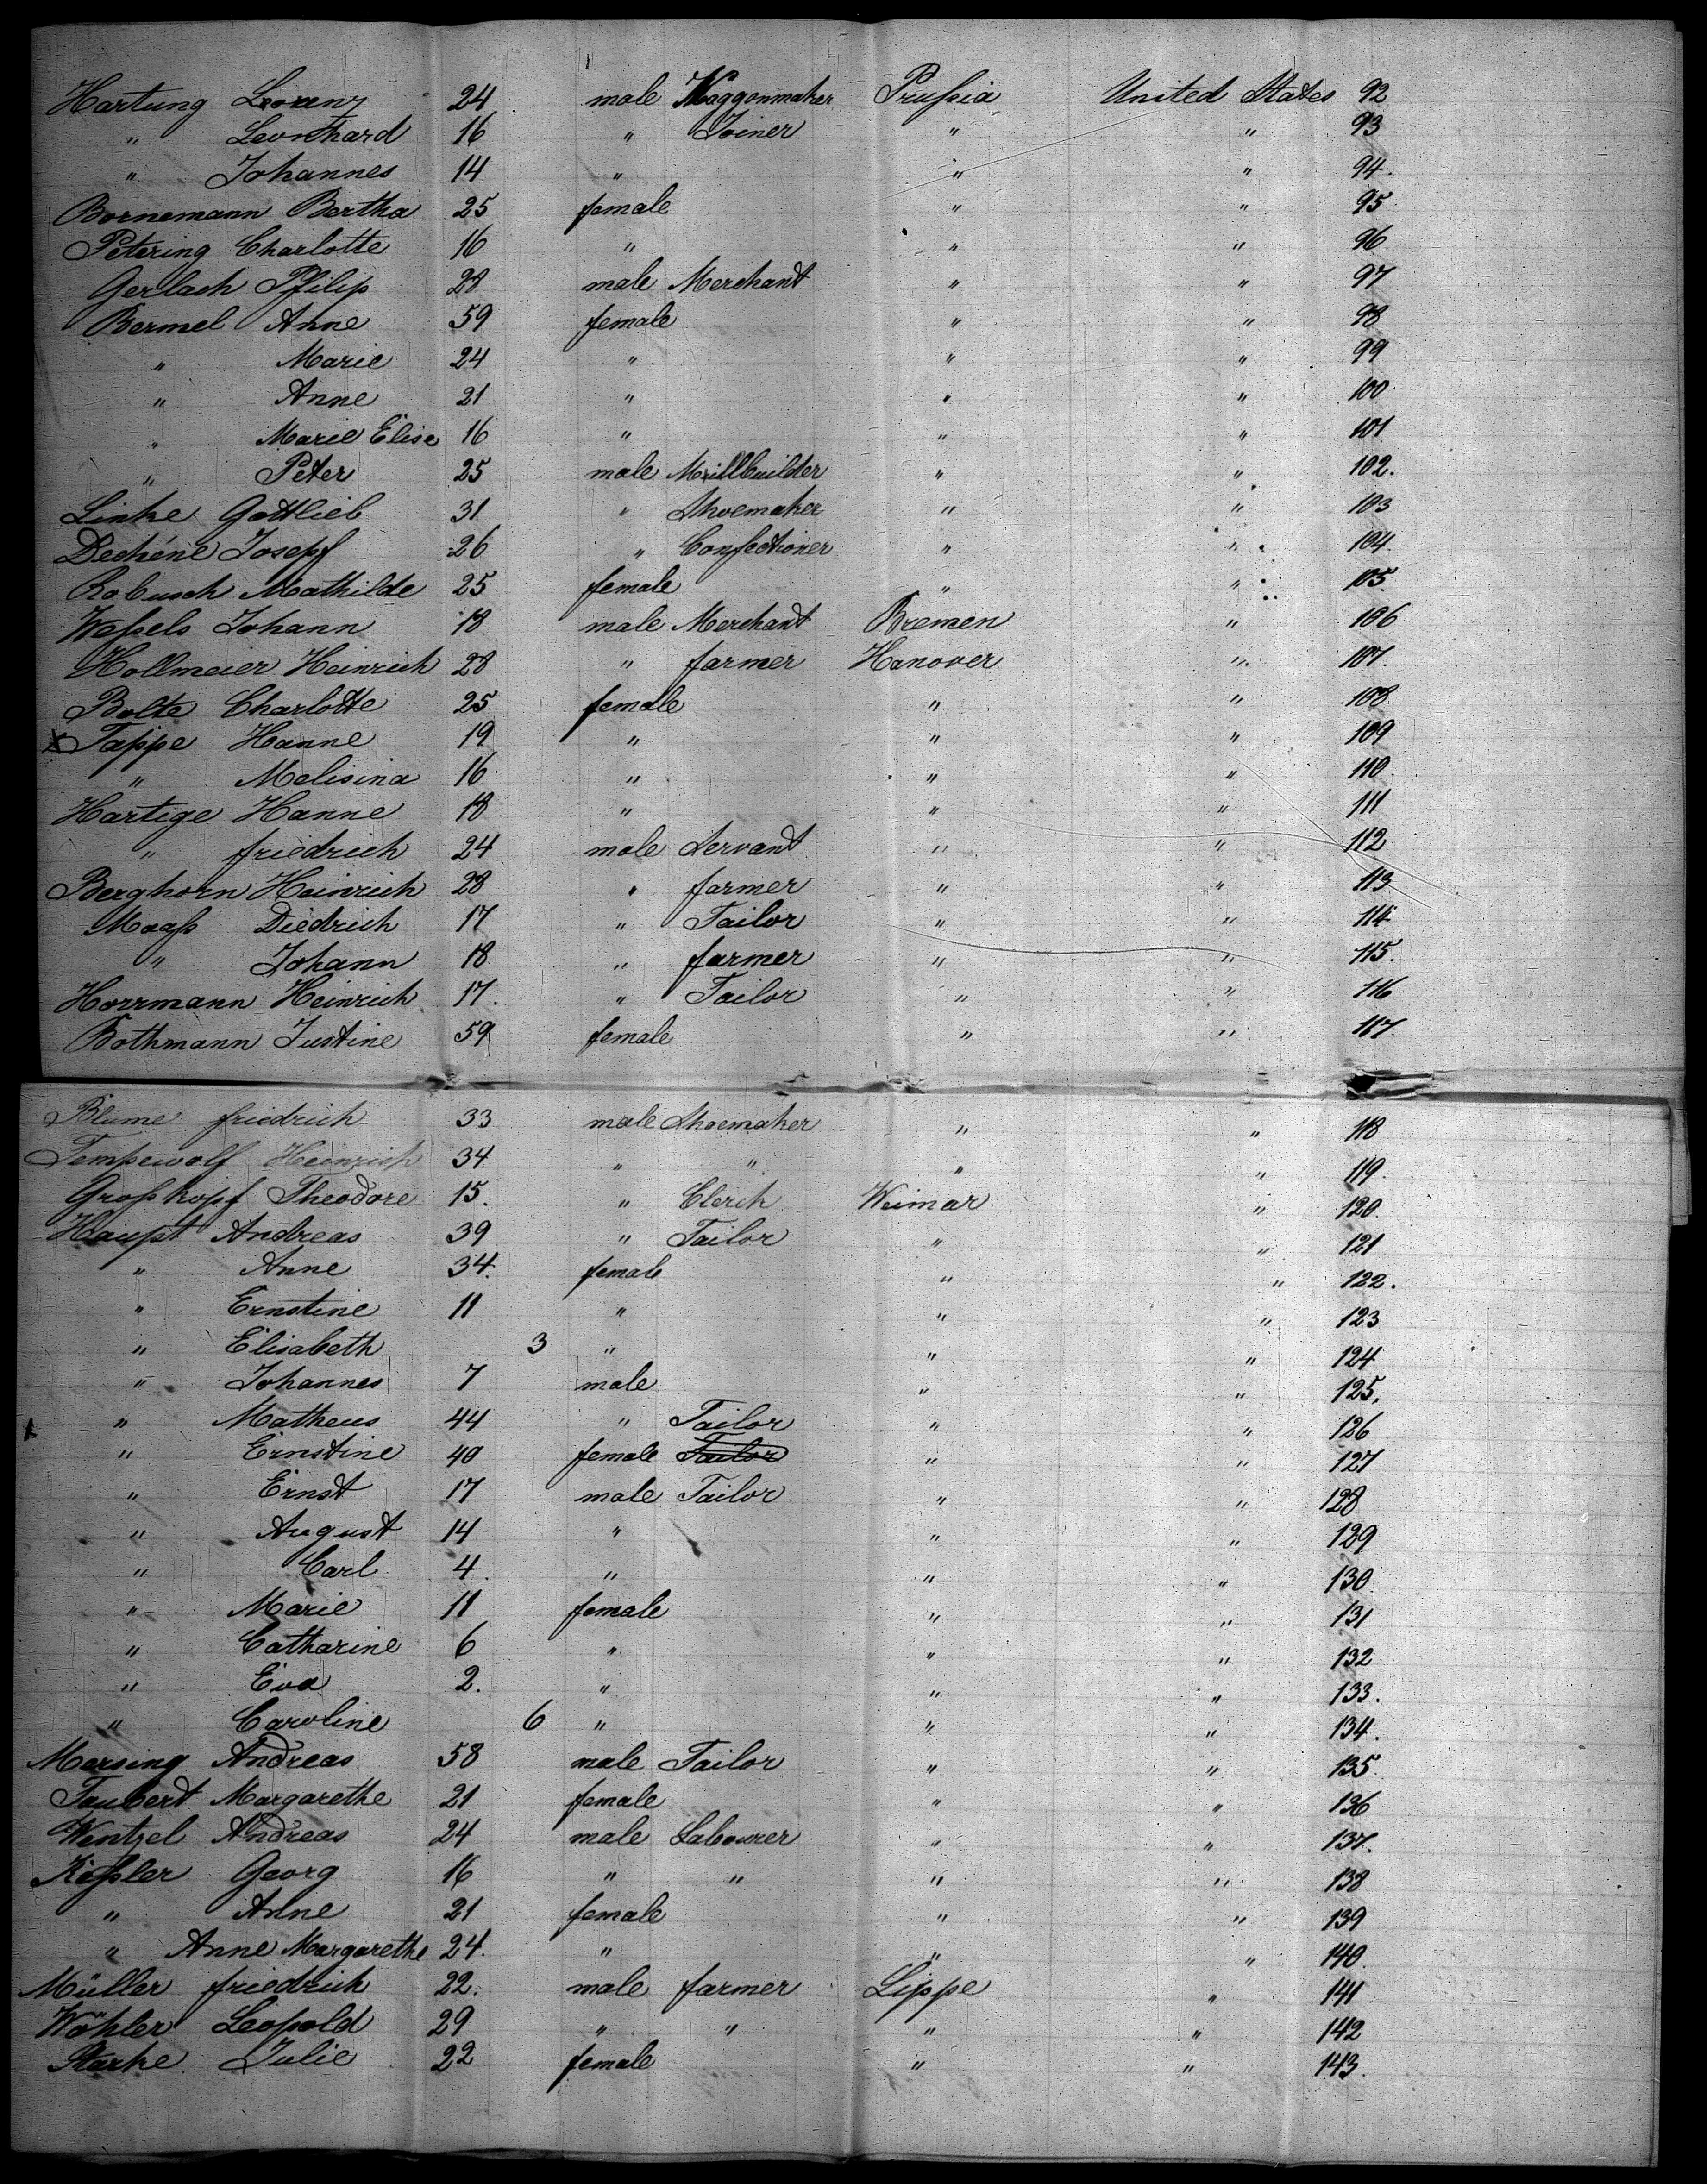 Hartung Lorenz 24 male Waggonmaker Prußia United States 92
" Leonhard 16 " Joiner " " 93
" Johannes 14 " " " 94.
Bornemann Bertha 25 female " " 95
Petering Charlotte 16 " " " 96
Gerlach Philip 28 male Merchant " " 97
Bermel Anne 59 female " " 98
" Marie 24 " " " 99
" Anne 21 " " " 100
" Marie Elise 16 " " " 101
" Peter 25 male Millbuilder " " 102.
Linke Gottlieb 31 " Shoemaker " " 103
Dechéne Josepf 26 " Confectioner " " 104.
Robusch Mathilde 25 female " " 105.
Weßels Johann 18 male Merchant Bremen " 106
Hollmeier Heinrich 28 " farmer Hanover " 107.
Bolte Charlotte 25 female " " 108
x Tappe Hanne 19 " " " 109
" Melisina 16 " " " 110.
Hartige Hanne 18 " " " 111
" friedrich 24 male Servant " " 112
Berghorn Heinrich 28 " farmer " " 113
Maaß Diedrich 17 " Tailor " " 114
" Johann 18 " farmer " " 115.
Horrmann Heinrich 17. " Tailor " " 116
Bothmann Justine 59 female " " 117.
Blume friedrich 33 male Shoemaker " " 118
Tempewolf Heinrich 34 " " " " 119.
Großkopf Theodore 15. " Clerck Weimar " 120.
Haupt Andreas 39 " Tailor " " 121
" Anne 34. female " " 122.
" Ernstine 11 " " " 123
" Elisabeth 3 " " " 124
" Johannes 7 male " " 125.
" Matheus 44 " Tailor " " 126
" Ernstine 40 female Tailor " " 127
" Ernst 17 male Tailor " " 128
" August 14 " " " 129
" Carl 4. " " " 130.
" Marie 11 female " " 131
" Catharine 6 " " " 132
" Eva 2. " " " 133.
" Caroline 6 " " " 134.
Mersing Andreas 58 male Tailor " " 135.
Taubert Margarethe 21 female " " 136
Wentzel Andreas 24 male Labourer " " 137.
Keßler Georg 16 " " " " 138
" Anne 21 female " " 139
" Anne Margarethe 24. " " " 140.
Müller friedrich 22. male farmer Lippe " 141
Wöhler Leopold 29 " " " " 142
Starke Julie 22 female " " 143.